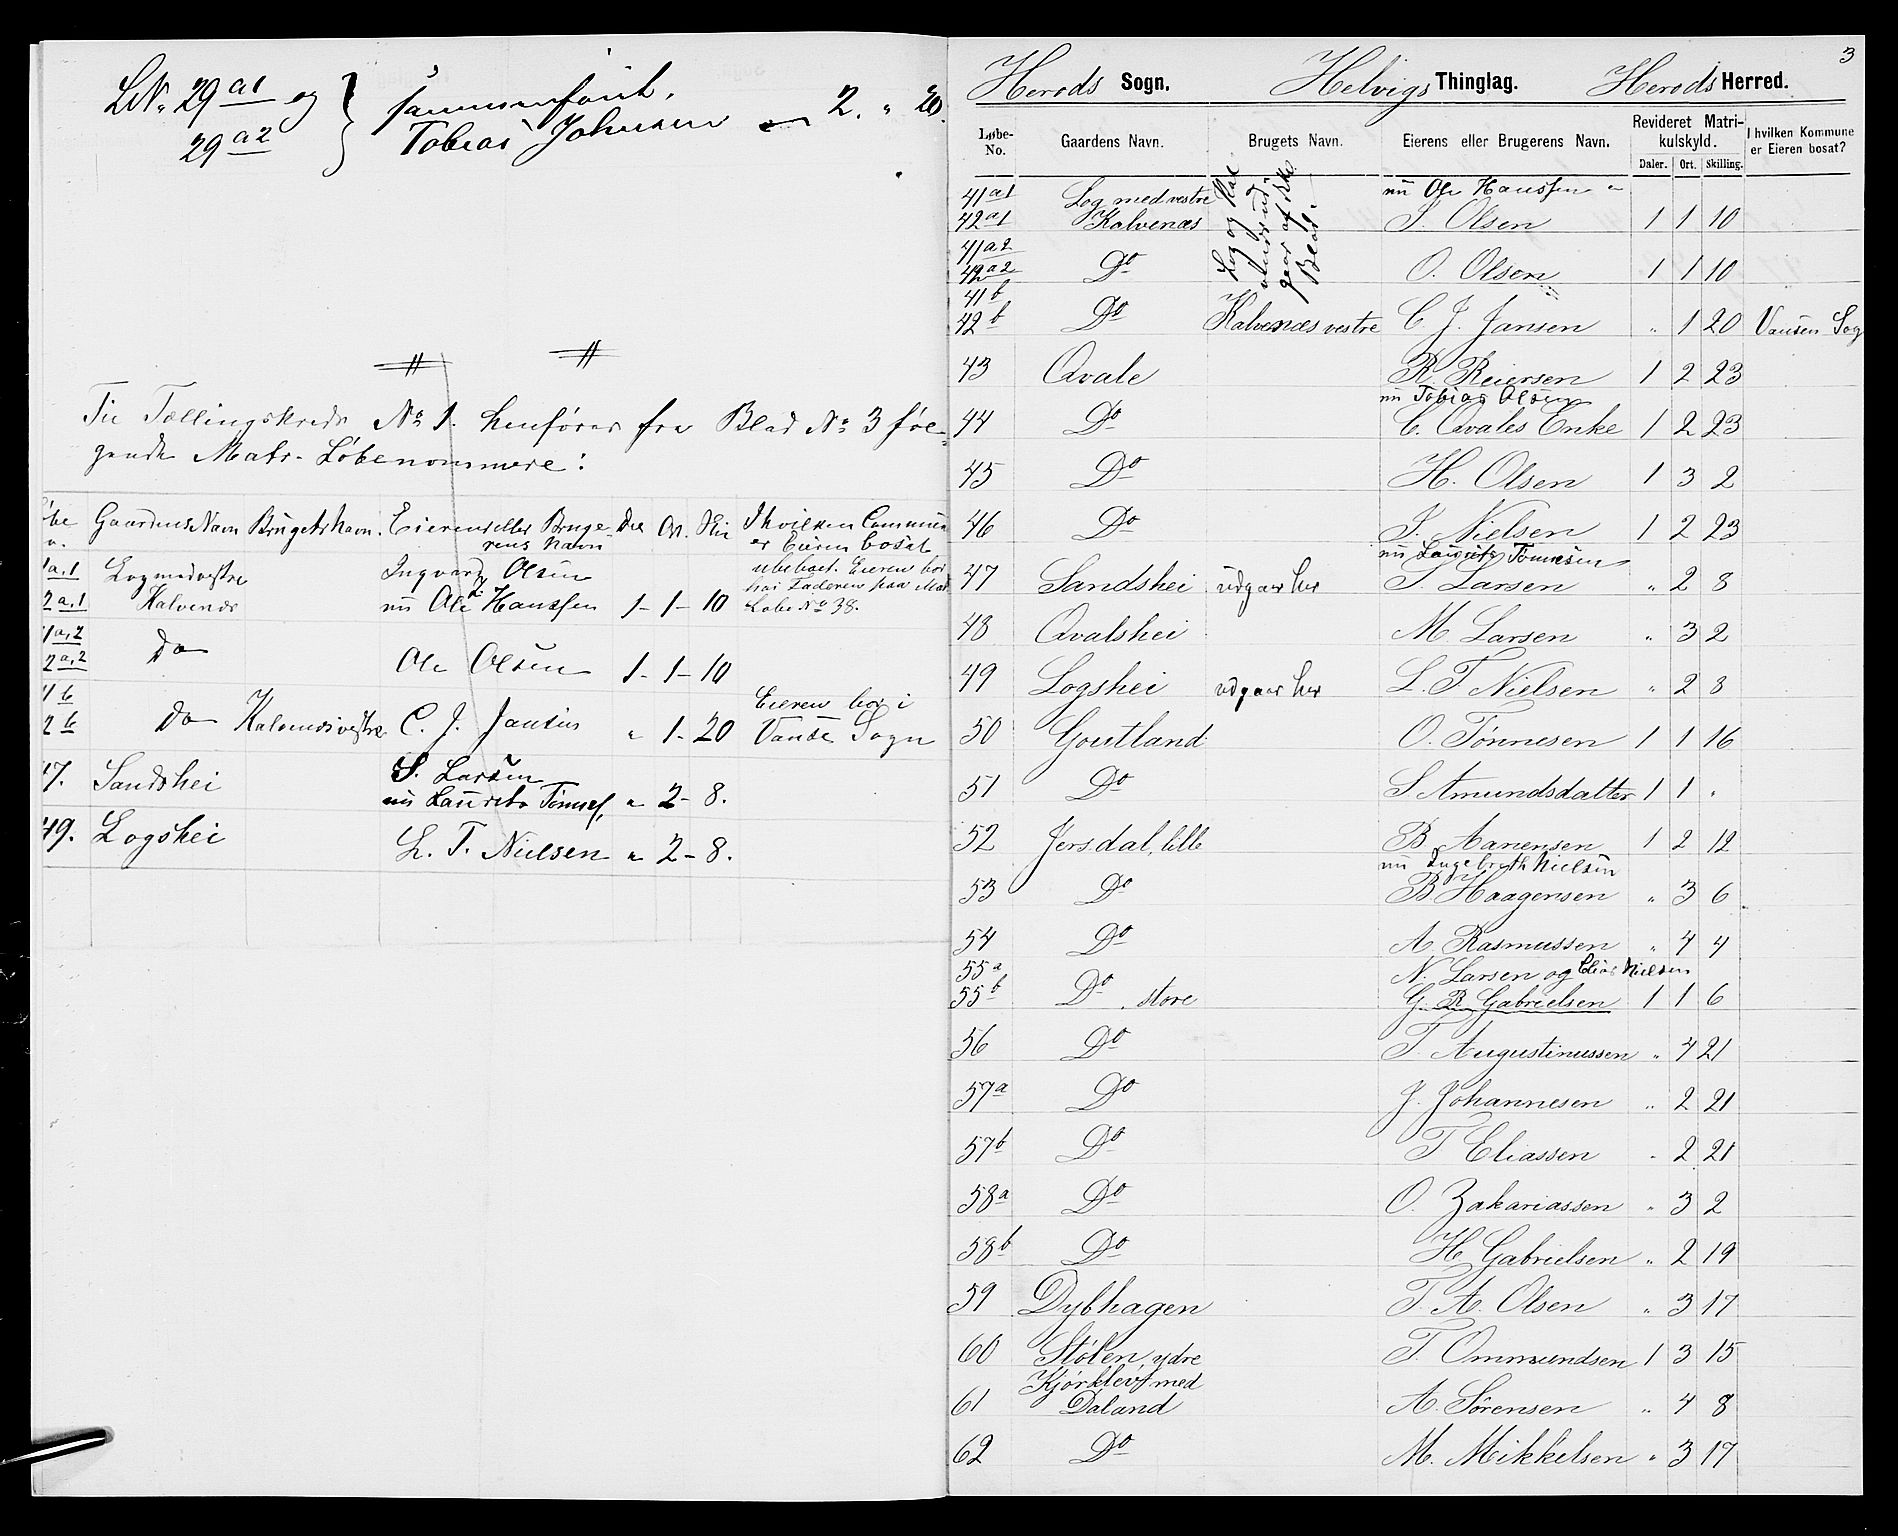 LN. 29 a1 og
29 a2
sammenföiet.
Tobias Johnsen 2. " 20.
Til Tællingskreds No 1. henföres fra Blad No 3 føl-
gende Matr. Løbenommere:
Gaardens Navn Brugets Navn. Eierens eller Bruge-
rens Navn
I hvilken Commune
er Eieren bosat
a.1 Log med vestre Ingvard Olsen
2a.1 Kalvenæs nu Ole Hanssen 1 - 1 - 10
ubeboet. Eieren bor
hos Faderen paa Mat
Løbe No 38.
1a.2
2a.2 Do Ole Olsen 1 - 1 - 10
1b
2b Do Kalvenæs vestre C. J. Jansen " 1 - 20
Eieren bor i
Vanse Sogn
7. Sandshei S. Larsen
nu Laurits Tønnes. " 2 - 8.
49. Logshei L. T. Nielsen " 2 - 8.
3
Herods Sogn. Helvigs Thinglag. Herods Herred.
Løbe-No. Gaardens Navn. Brugets Navn. Eierens eller Brugerens Navn. Revideret Matri-kulskyld. I hvilken Kommune er Eieren bosat?
Daler. Ort. Skilling.
41a1 Log med vestre nu Ole Hanssen
42a1 Kalvenæs S. Olsen 1 1 10
41a2
42a2 Do O. Olsen 1 1 10
41b
42b Do Kalvenæs vestre C. J. Jansen " 1 20 Vansen Sog
43 Qvale R. Reiersen 1 2 23
nu Tobias Olsen
44 Do C. Qvales Enke 1 2 23
45 Do H. Olsen 1 3 2
46 Do J. Nielsen 1 2 23
nu Laurits Tønnesen
47 Sandshei udgaar her S. Larsen " 2 8
48 Qvalshei M. Larsen " 3 2
49 Logshei udgaar her L. T. Nielsen " 2 8
50 Goutland O. Tønnesen 1 1 16
51 Do S. Amundsdatter 1 1 "
52 Jersdal, lille B. Aanensen 1 2 12
nu Ingebreth Nielsen
53 Do B. Haagensen " 3 6
54 Do A. Rasmussen " 4 4
55a N. Larsen og Elias Nielsen
55b Do, store G. R. Gabrielsen 1 1 6
56 Do T. Augustinussen " 4 21
57a Do J. Johannesen " 2 21
57b Do T. Eliassen " 2 21
58a Do O. Zakariassen " 3 2
58b Do H. Gabrielsen " 2 19
59 Dybhagen T. A. Olsen " 3 17
60 Stølen, ydre T. Ommundsen 1 3 15
Kjørklev med
61 Daland A. Sørensen " 4 8
62 Do M. Mikkelsen " 3 17